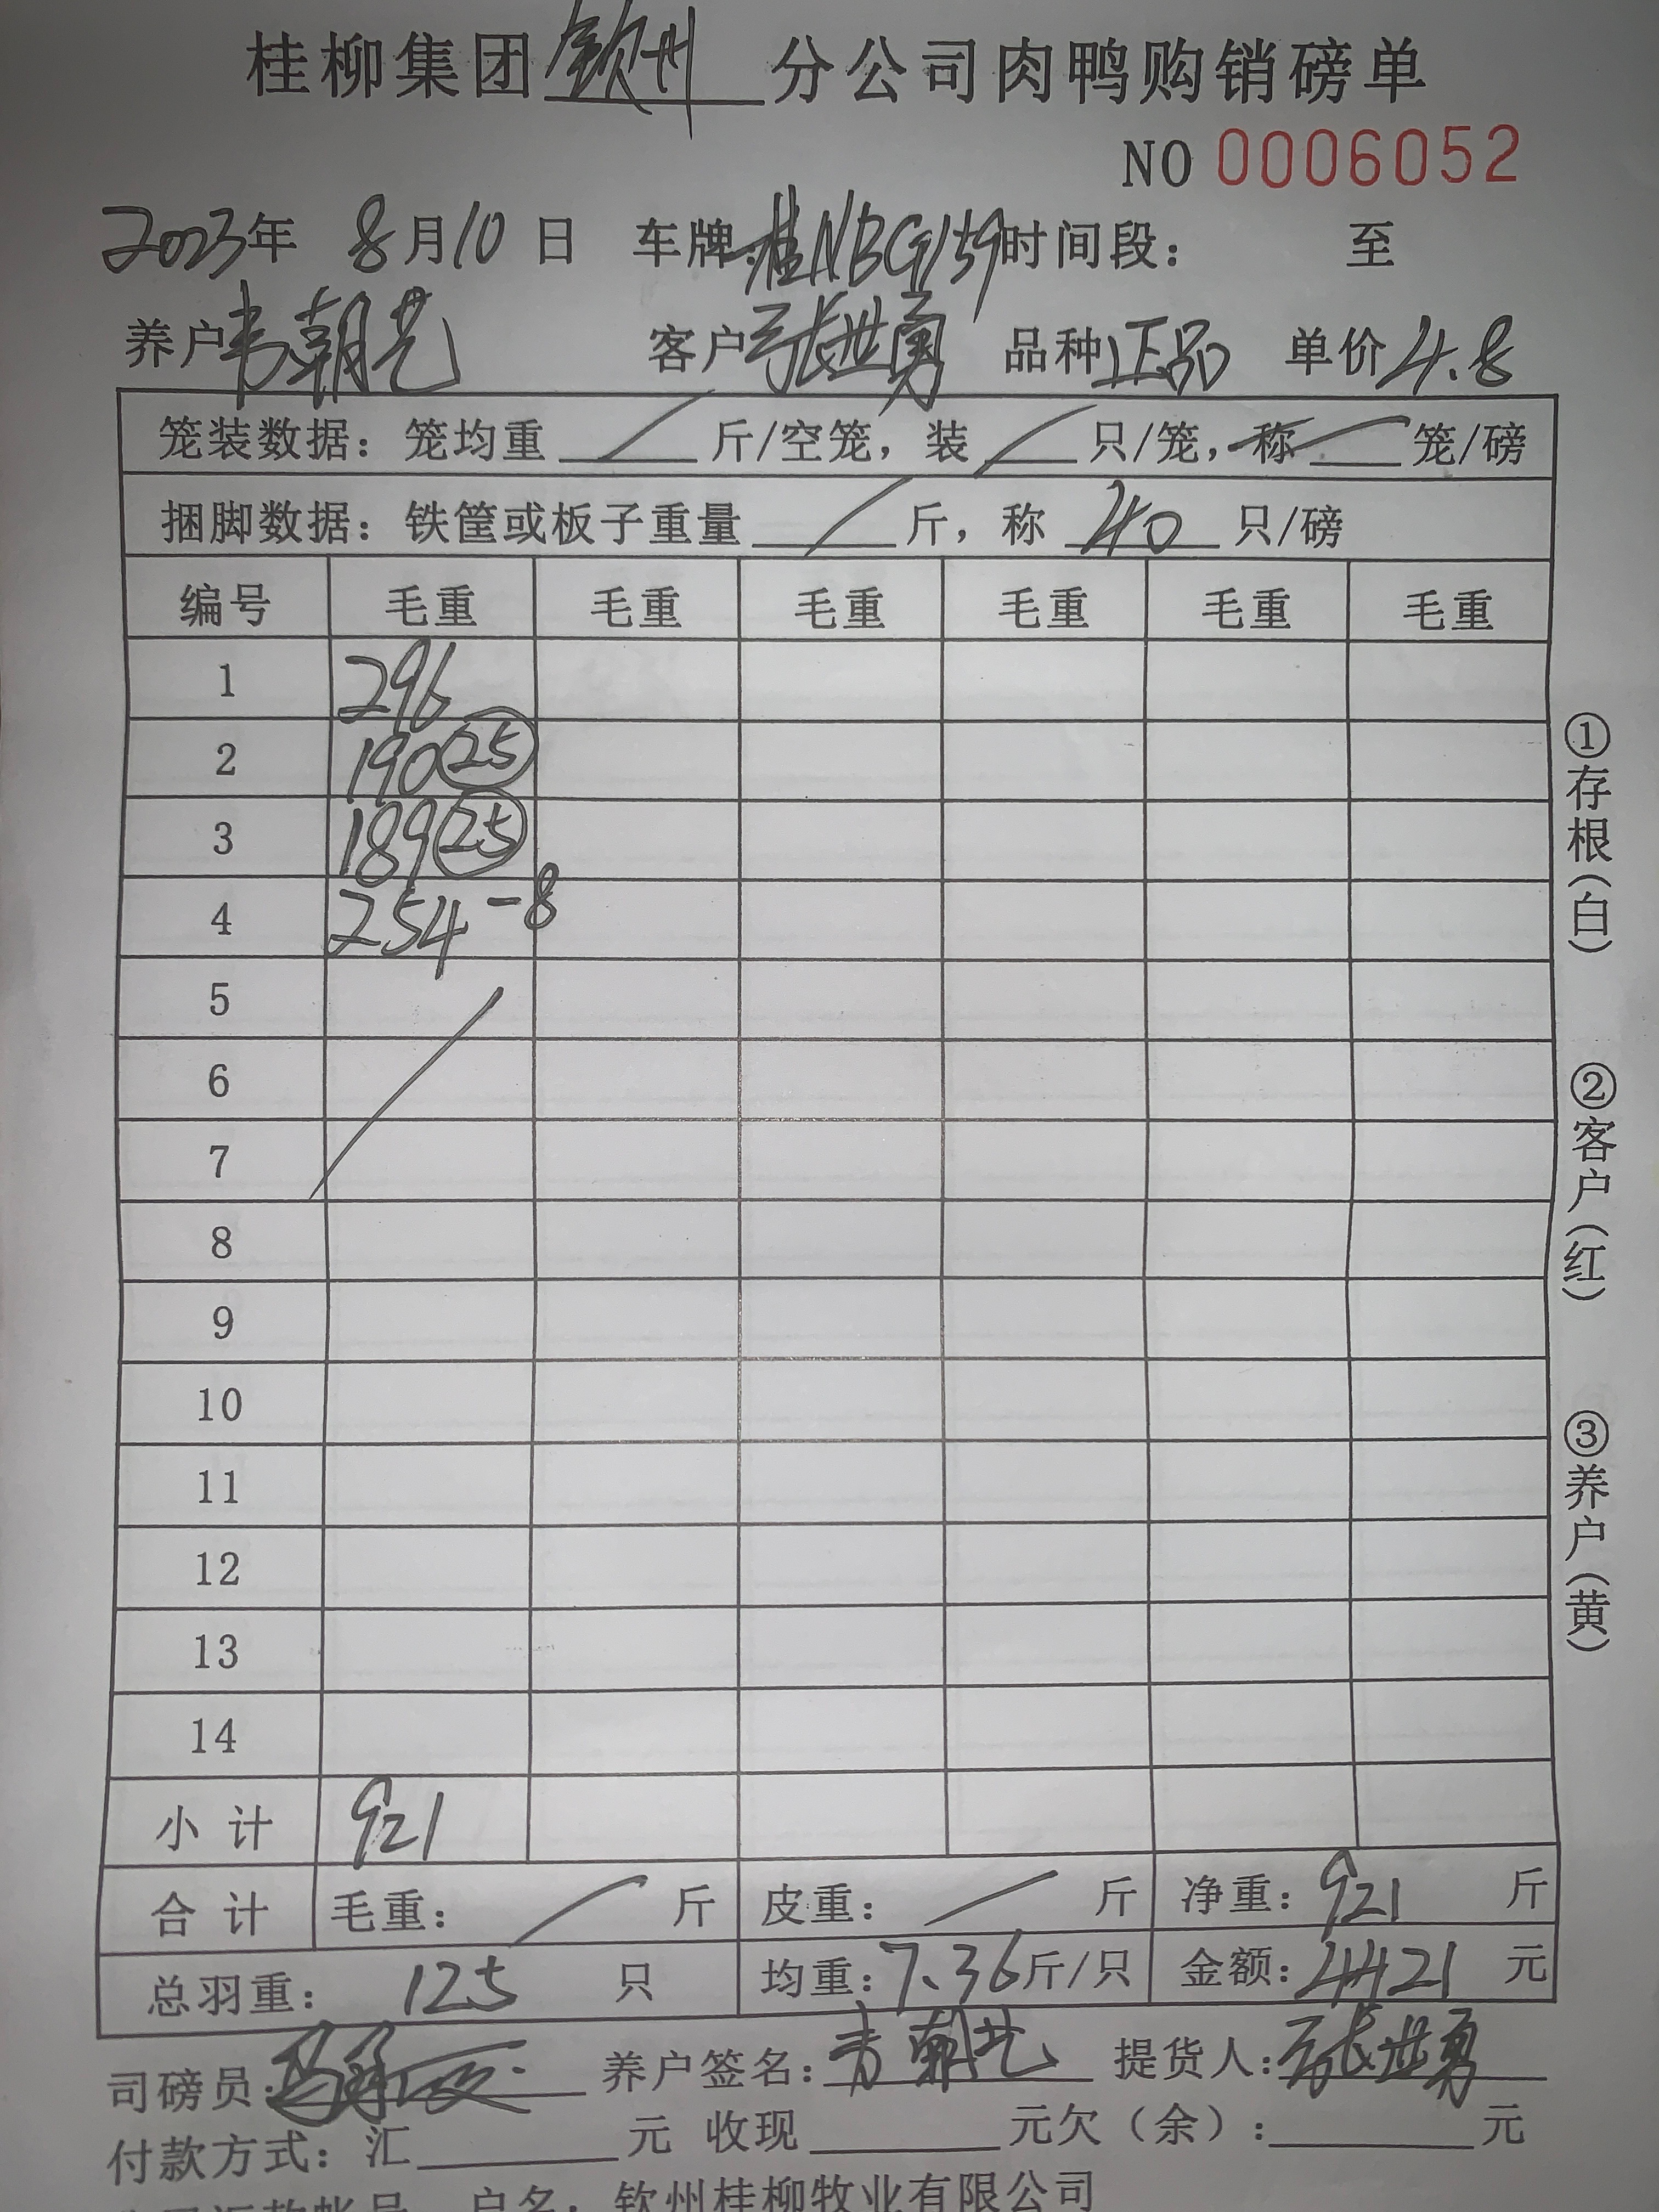 桂柳集团钦州分公司肉鸭购销磅单
NO 0006052
2023年 8月10日 车牌:桂NBG159时间段: 至
养户韦朝艺 客户张世勇 品种正品 单价4.8
笼装数据:笼均重 斤/空笼,装 只/笼,称 笼/磅
捆脚数据:铁筐或板子重量 斤,称 40 只/磅
编号 毛重 毛重 毛重 毛重 毛重 毛重
1 296
2 190 25
3 189 25
4 254 -8
5
6
7
8
9
10
11
12
13
14
小计 921
合计 毛重: 斤 皮重: 斤 净重:921 斤
总羽重: 125 只 均重:7.36斤/只 金额:4421 元
司磅员: 养户签名:韦朝艺 提货人:张世勇
付款方式:汇 元 收现 元欠(余): 元
户名:钦州桂柳牧业有限公司
①存根(白)
②客户(红)
③养户(黄)